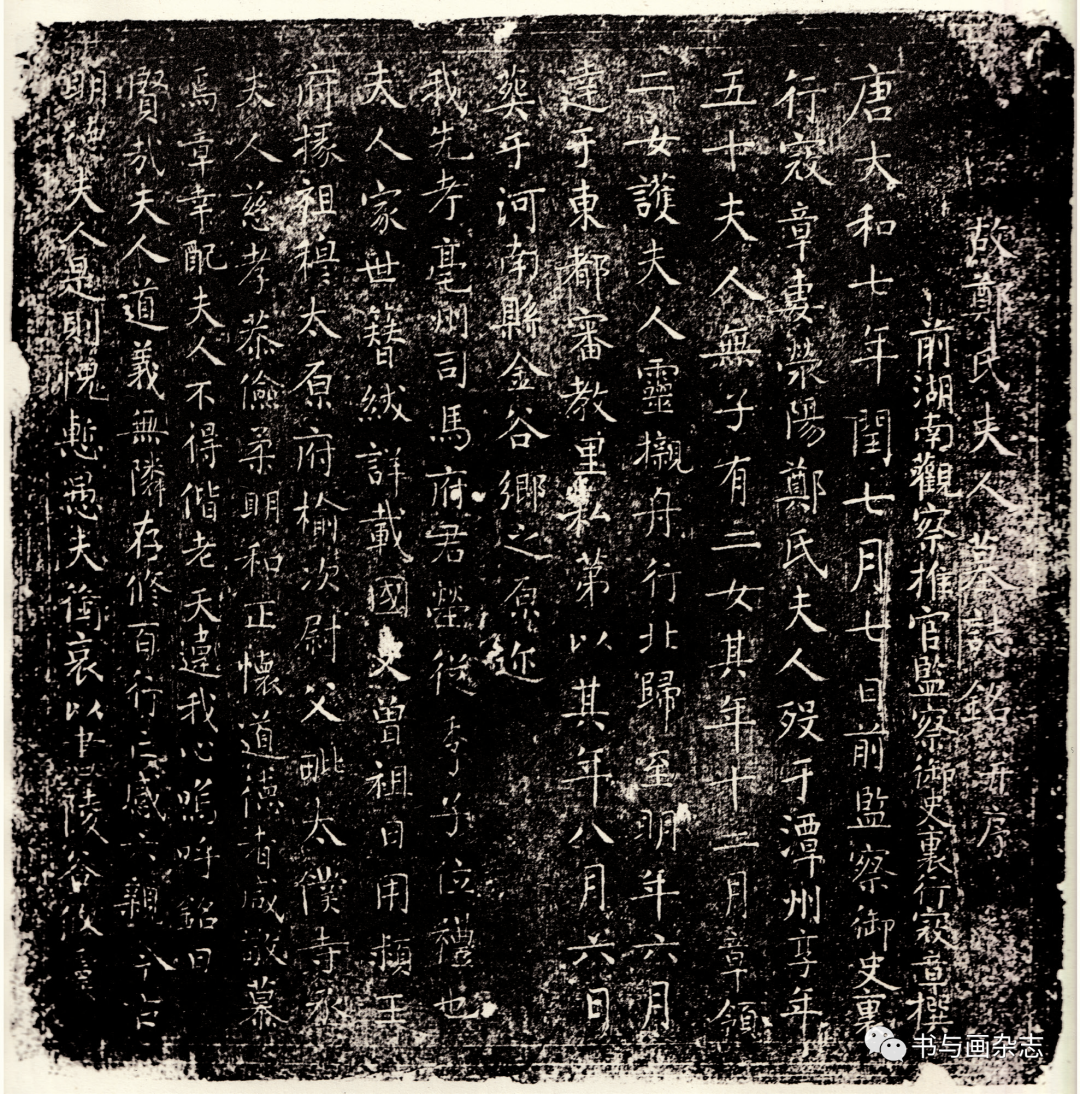 故鄭氏夫人墓誌銘并序
前湖南觀察推官監察御史裏行寇章撰
唐大和七年閏七月七日前監察御史裏
行寇章妻滎陽鄭氏夫人歿于潭州享年
五十夫人無子有二女其年十二月章領
二女護夫人靈櫬舟行北歸至明年六月
達于東都審教里私第以其年八月六日
葬于河南縣金谷鄉之原迩
我先考亳州司馬府君塋從季子位禮也
夫人家世簪紱詳載國史曾祖日用頻王
府掾祖稷太原府榆次尉父毗太僕寺丞
夫人慈孝恭儉柔明和正懷道德者咸敬慕
焉章幸配夫人不得偕老天違我心嗚呼銘曰
賢哉夫人道義無隣存修百行亡感六親今古
明神夫人是則愧慙愚夫銜哀以
陵谷